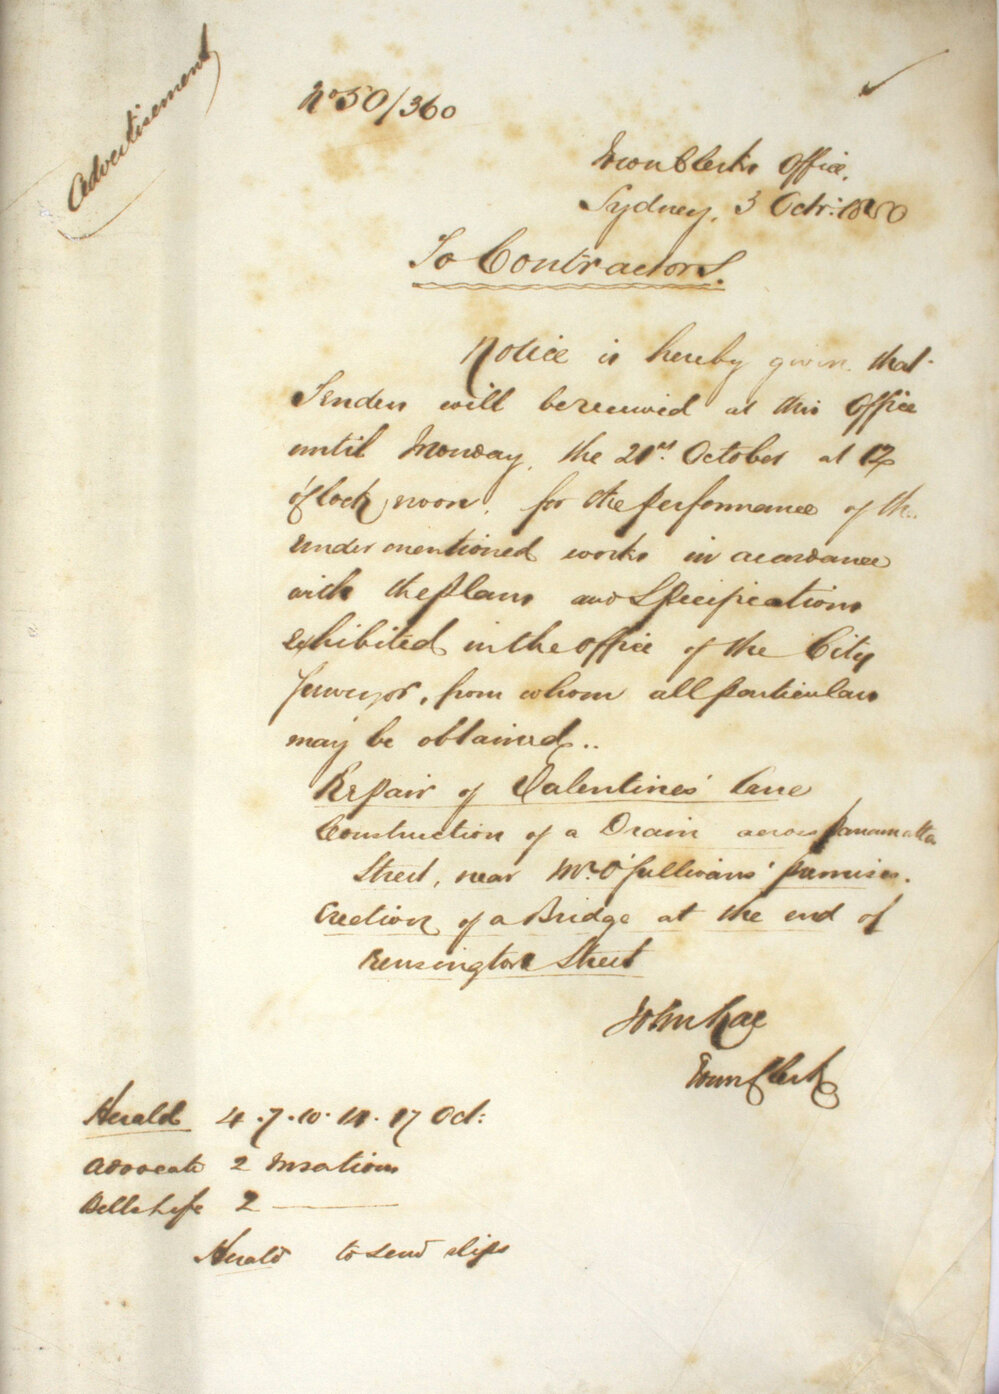 Advertisement
No 50/360
Town Clerk's Office.
Sydney, 3 Octr: 1850
To Contractors.
Notice is hereby given that
Tenders will be received at this Office
until Monday, the 21st. October at 12
o'Clock noon, for the performance of the
undermentioned works in accordance
with the Plans and Specifications
exhibited in the Office of the City
Surveyor, from whom all particulars
may be obtained..
Repair of Valentines' Lane
Construction of a Drain across Parramatta
Street, near Mr. O'Sullivans' premises.
Erection of a Bridge at the end of
Kensington Street
John Rae
Town Clerk
Herald 4. 7. 10. 14. 17 Oct:
Advocate 2 Insertions
Bells Life 2 ———
Herald to send slips